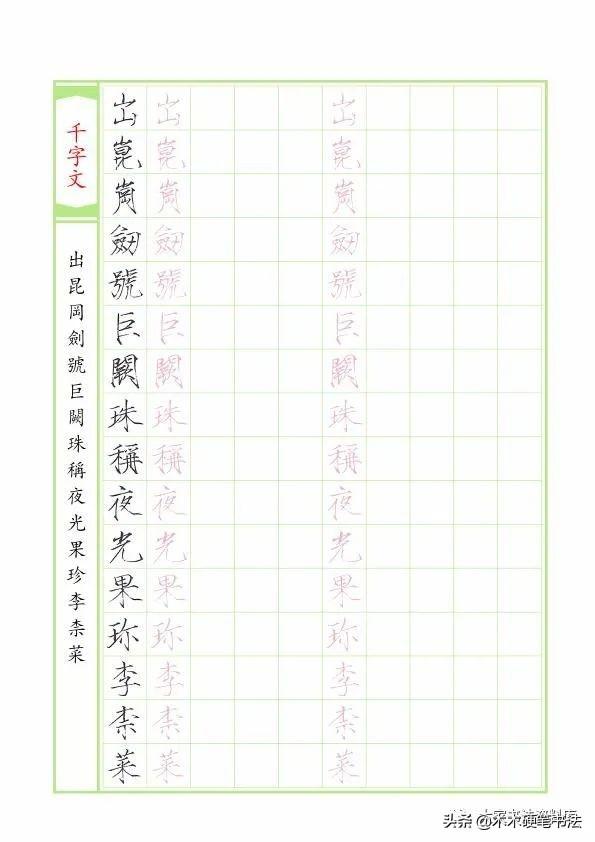 千字文
出昆岡劍號巨闕珠稱夜光果珍李柰菜
出崑崗劒號巨闕珠稱夜光果珎李柰菜
出崑崗劒號巨闕珠稱夜光果珎李柰菜
出崑崗劒號巨闕珠稱夜光果珎李柰菜
头条 @木木硬笔书法